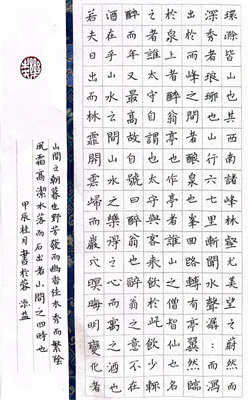 環滁皆山也其西南諸峰林壑尤美望之蔚然而
深秀者琅琊也山行六七里漸聞水聲潺:而瀉
出於兩峰之間者釀泉也峰回路轉有亭翼然臨
於泉上者醉翁亭也作亭者誰山之僧智仙也名
之者誰太守自謂也太守與客來飲於此飲少輒
醉而年又最高故自號曰醉翁也醉翁之意不在
酒在乎山水之間也山水之樂得之心而寓之酒也
若夫日出而林霏開雲歸而巖穴暝晦明變化者
山間之朝暮也野芳發而幽香佳木秀而繁陰
風霜高潔水落而石出者山間之四時也
甲辰桂月書於蓉